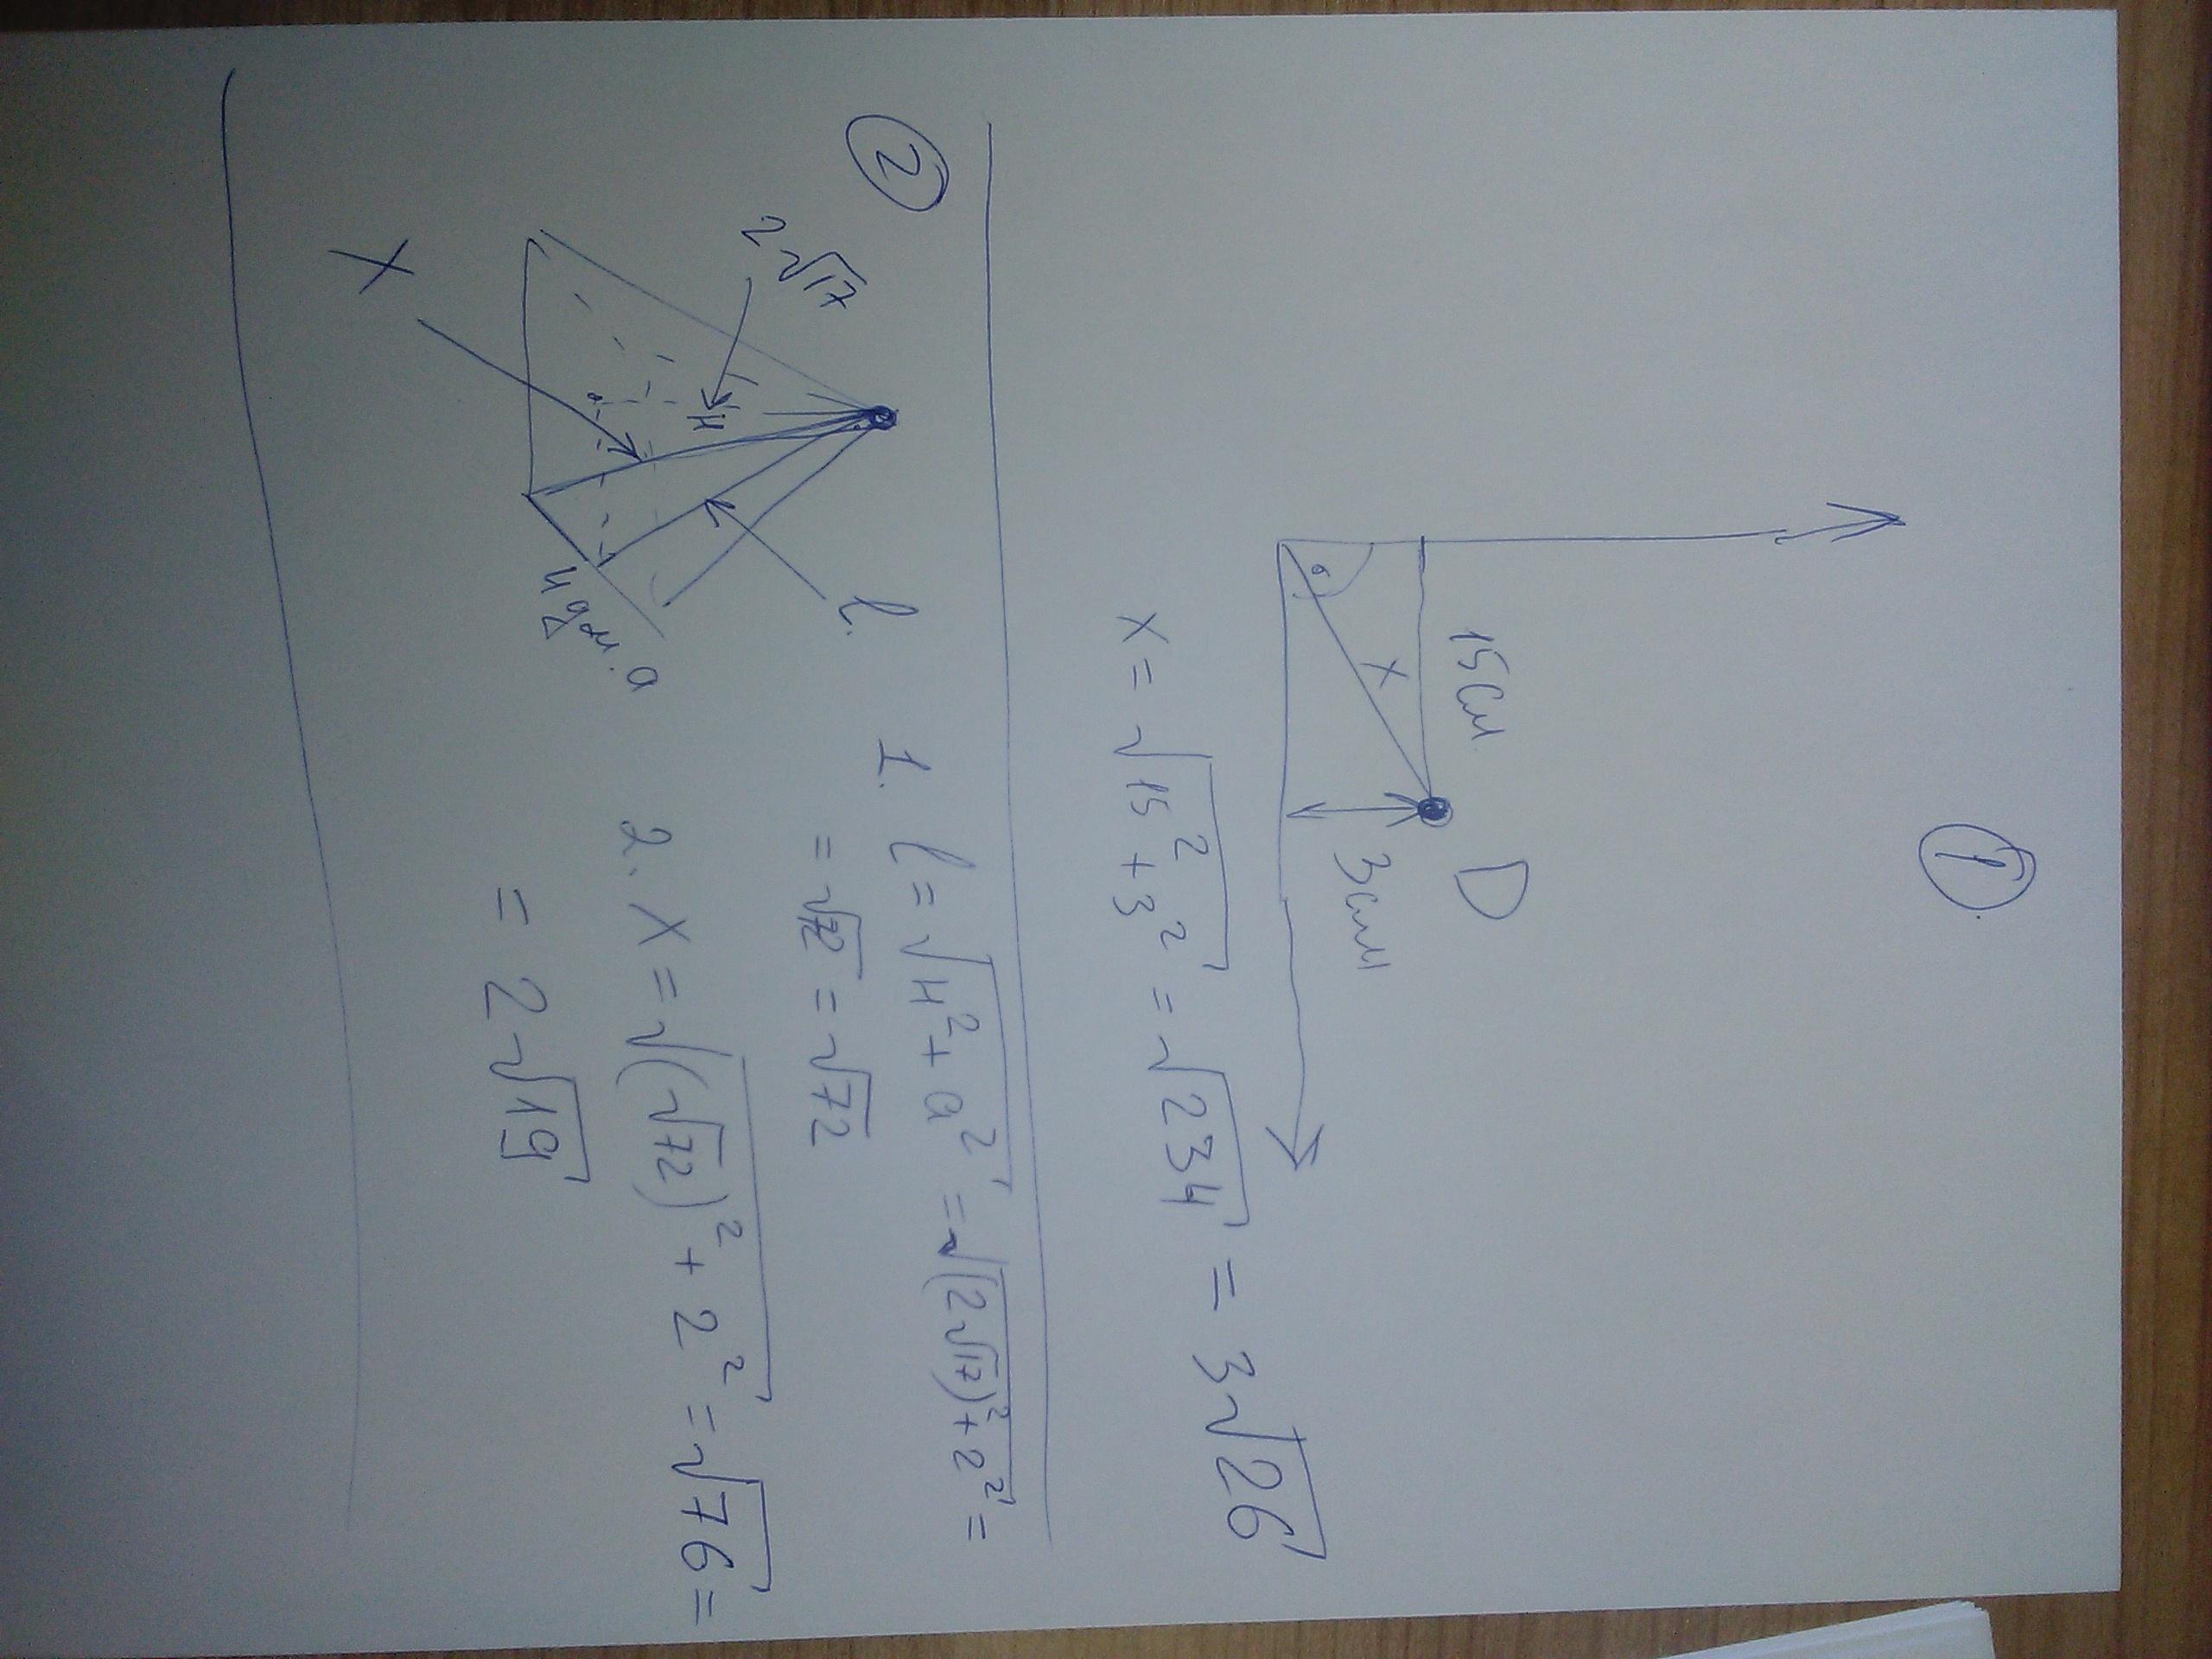 ①
D
15см
3см
x
x = √15² + 3² = √234 = 3√26
②
2√17
H
l.
X
a.
1. l = √H² + a² = √(2√17)² + 2² =
= √72 = √72
2. X = √(√72)² + 2² = √76 =
= 2√19